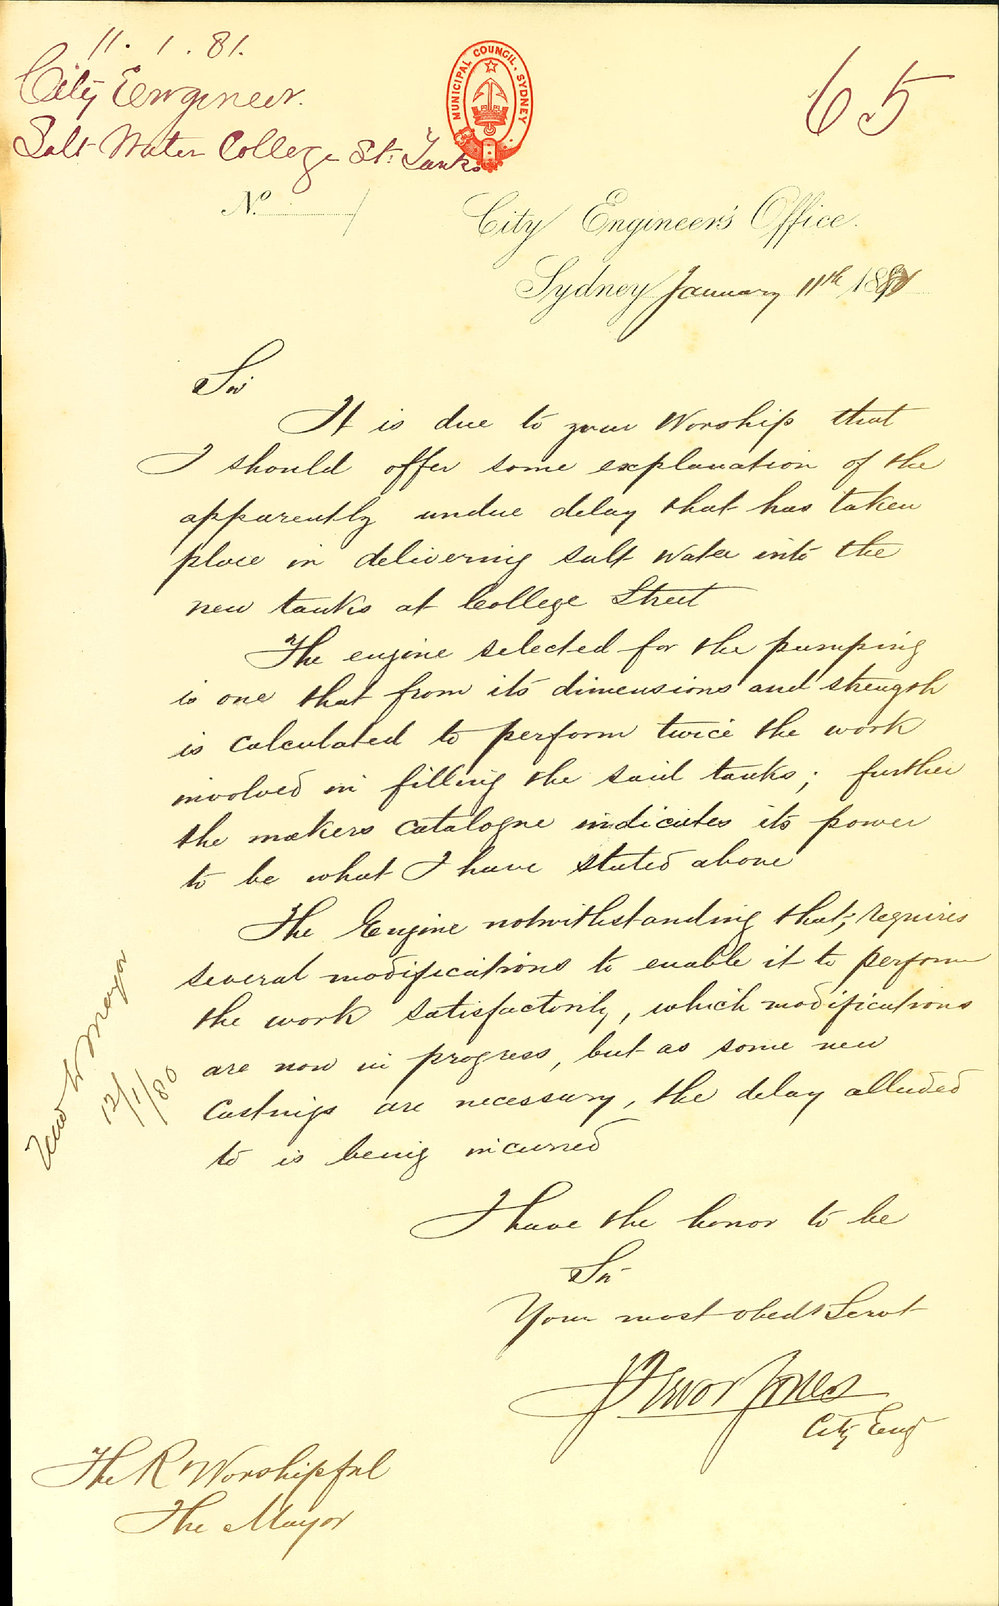 11. 1. 81.
City Engineer.
Salt Water College St: Tanks
65
MUNICIPAL COUNCIL. SYDNEY
No.
City Engineer's Office.
Sydney January 11th 1881
Sir
It is due to your Worship that
I should offer some explanation of the
apparently undue delay that has taken
place in delivering salt water into the
new tanks at College Street
The engine selected for the pumping
is one that from its dimensions and strength
is calculated to perform twice the work
involved in filling the said tanks; further
the makers catalogue indicates its power
to be what I have stated above
The Engine notwithstanding that, requires
several modifications to enable it to perform
the work satisfactorily, which modifications
are now in progress, but as some new
Castings are necessary, the delay alluded
to is being incurred
I have the honor to be
Sir
Your most obedt Servt
Trevor Jones
City Eng
The Rt Worshipful
The Mayor
Mayor
12/1/80